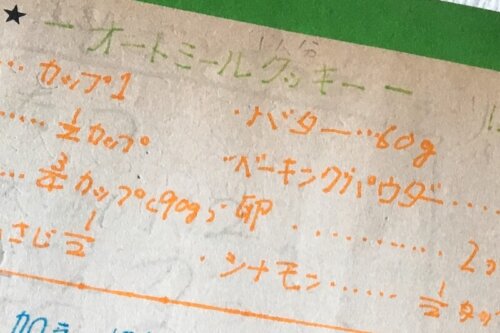 ★ ー オートミールクッキー ー
…… カップ1 ・バター…60g
…… 1/2カップ ・ベーキングパウダー……
…… 3/4カップ(90g) ・卵 ………… 2
さじ 1/2 ・シナモン…… 1/2